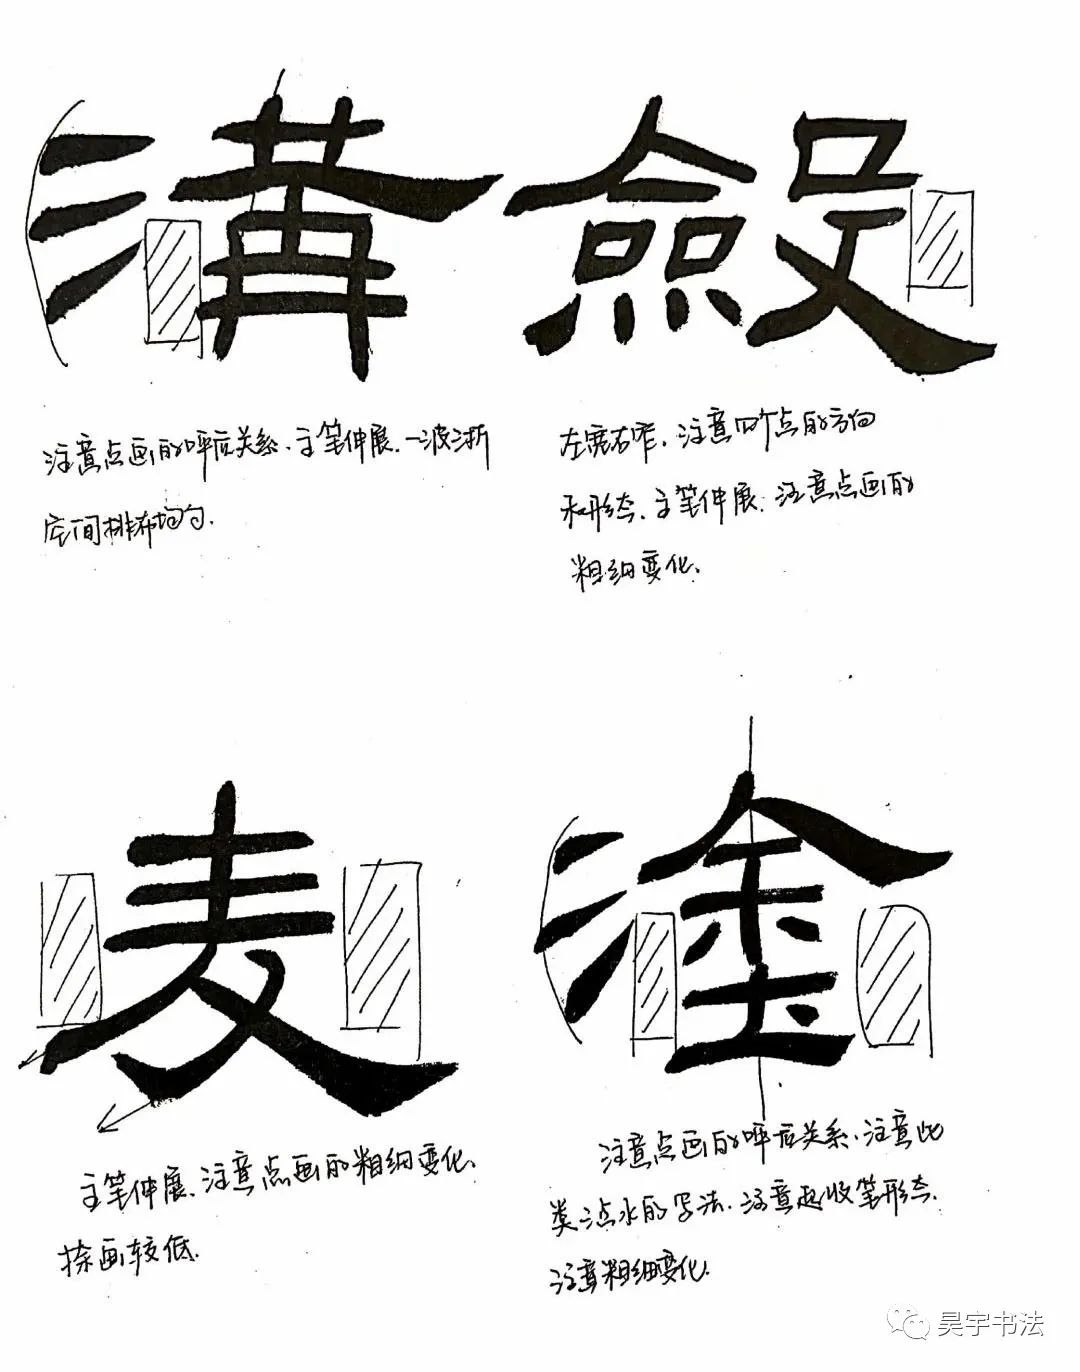 溝
注意点画的呼应关系、主笔伸展、一波三折
空间排布均匀.
斂
左宽右窄、注意四个点的方向
和形态、主笔伸展、注意点画的
粗细变化.
麦
主笔伸展、注意点画的粗细变化、
捺画较低.
塗
注意点画的呼应关系、注意此
类三点水的写法、注意起收笔形态、
注意粗细变化.
昊宇书法